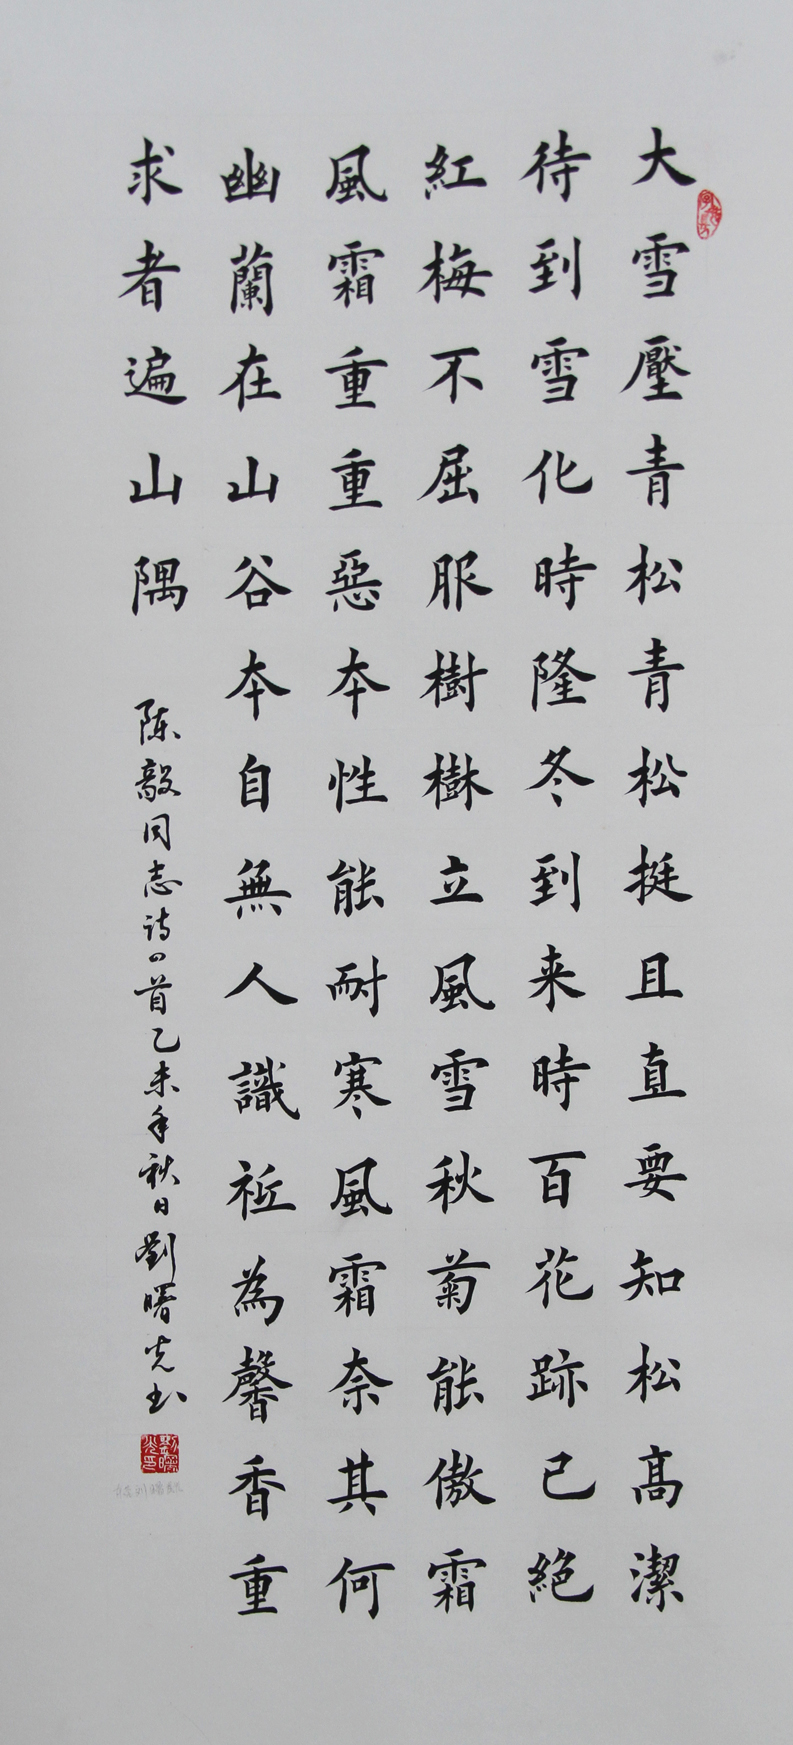 大雪壓青松青松挺且直要知松高潔
待到雪化時隆冬到来時百花跡已絕
紅梅不屈服樹樹立風雪秋菊能傲霜
風霜重重惡本性能耐寒風霜奈其何
幽蘭在山谷本自無人識祗為馨香重
求者遍山隅
陈毅同志诗四首乙未年秋日劉曙光书